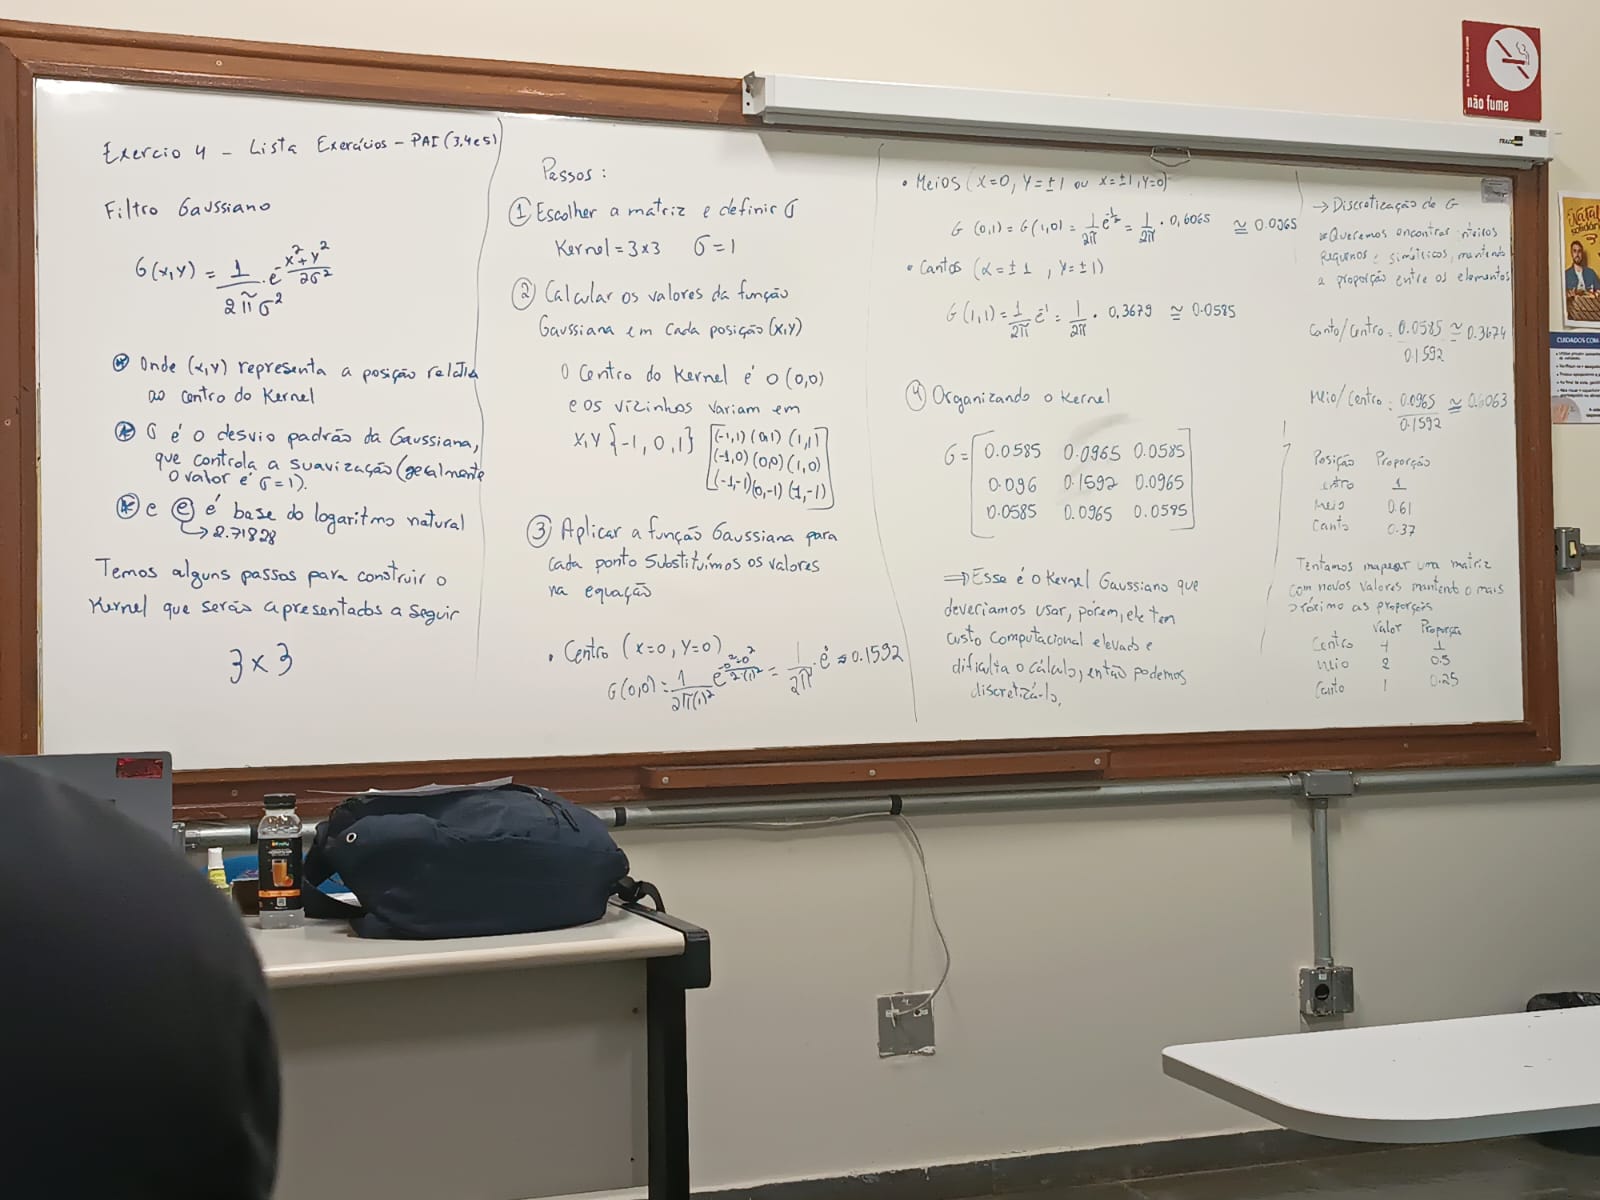 Exercio 4 - Lista Exercícios - PAI (3,4e5)
Filtro Gaussiano
G(x,y) = 1/2πσ² · e^-(x²+y²)/2σ²
* Onde (x,y) representa a posição relativa
ao centro do Kernel
* σ é o desvio padrão da Gaussiana,
que controla a suavização (geralmente
o valor é σ=1).
* e e é base do logaritmo natural
→ 2.71828
Temos alguns passos para construir o
Kernel que serão apresentados a seguir
3x3
Passos:
1 Escolher a matriz e definir σ
Kernel = 3x3 σ = 1
2 Calcular os valores da função
Gaussiana em cada posição (x,y)
O centro do Kernel é o (0,0)
e os vizinhos variam em
x,y {-1, 0, 1}
(-1,1) (0,1) (1,1)
(-1,0) (0,0) (1,0)
(-1,-1) (0,-1) (1,-1)
3 Aplicar a função Gaussiana para
cada ponto substituímos os valores
na equação
• Centro (x=0, y=0)
G(0,0) = 1/2π(1)² e^-0²-0²/2·(1)² = 1/2π · e⁰ ≈ 0.1592
• Meios (x=0, y=±1 ou x=±1, y=0)
G(0,1) = G(1,0) = 1/2π e^-1/2 = 1/2π · 0,6065 ≅ 0.0965
• Cantos (x=±1, y=±1)
G(1,1) = 1/2π e^-1 = 1/2π · 0,3679 ≅ 0.0585
4 Organizando o Kernel
G = 0.0585 0.0965 0.0585
0.096 0.1592 0.0965
0.0585 0.0965 0.0585
⇒ Esse é o Kernel Gaussiano que
deveríamos usar, porém, ele tem
custo computacional elevado e
dificulta o cálculo, então podemos
discretizá-lo.
→ Discretização de G
* Queremos encontrar inteiros
pequenos e simétricos, mantendo
a proporção entre os elementos
Canto/Centro: 0.0585/0.1592 ≅ 0.3674
Meio/Centro: 0.0965/0.1592 ≅ 0.6063
Posição Proporção
entro 1
Meio 0.61
Canto 0.37
Tentamos mapear uma matriz
com novos valores mantento o mais
próximo as proporções
Valor Proporção
Centro 4 1
meio 2 0.5
Canto 1 0.25
não fume
Natal
solidário
CUIDADOS COM